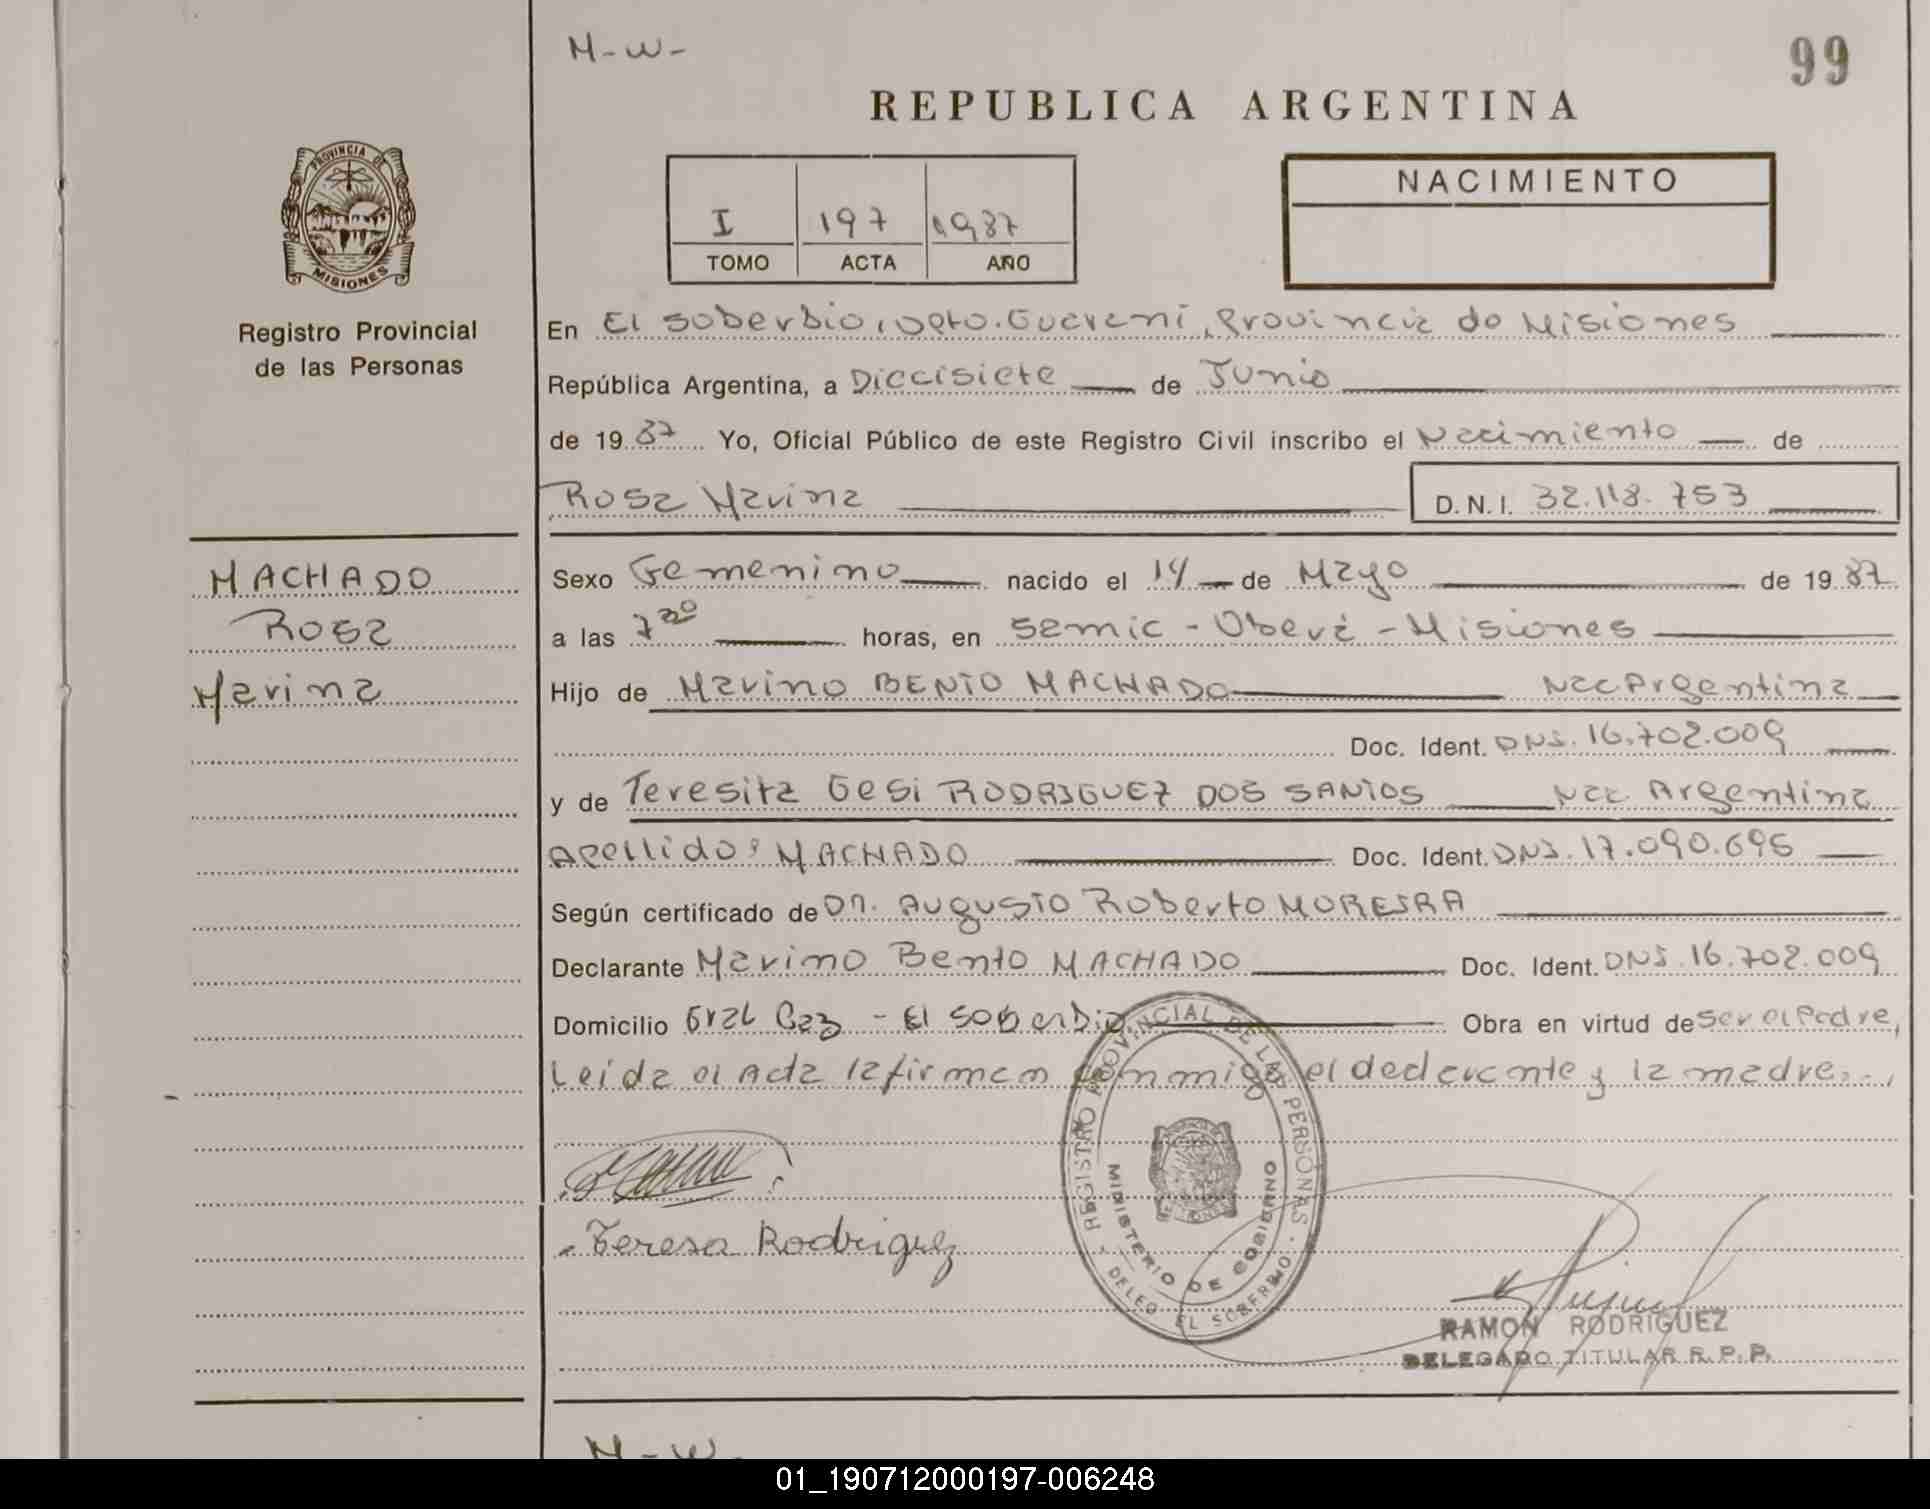 M-W-
99
REPUBLICA ARGENTINA
PROVINCIA DE
MISIONES
Registro Provincial
de las Personas
I 197 1987
TOMO ACTA AÑO
NACIMIENTO
En El Soberbio, Dpto. Guarani, Provincia de Misiones
República Argentina, a Diecisiete de Junio
de 19 87 Yo, Oficial Público de este Registro Civil inscribo el Nacimiento de
Rosa Marina D.N.I. 32.118.753
MACHADO
Rosa
Marina
Sexo Femenino nacido el 14 de Mayo de 19 87
a las 7 30 horas, en Samic - Oberá - Misiones
Hijo de Marino BENTO MACHADO Nac Argentina
Doc. Ident. DNI. 16.702.009
y de Teresita Gesi RODRIGUEZ DOS SANTOS Nac Argentina
Apellido: MACHADO Doc. Ident. DNI. 17.090.695
Según certificado de Dr. Augusto Roberto MOREIRA
Declarante Marino Bento MACHADO Doc. Ident. DNI. 16.702.009
Domicilio Gral Paz - El Soberbio Obra en virtud de ser el Padre,
Leida el Acta la firman conmigo el declarante y la madre.-.,
Teresa Rodriguez
REGISTRO PROVINCIAL DE LAS PERSONAS
MINISTERIO DE GOBIERNO
DELEG. EL SOBERBIO
RAMON RODRIGUEZ
DELEGADO TITULAR R.P.P.
M-W-
01_190712000197-006248